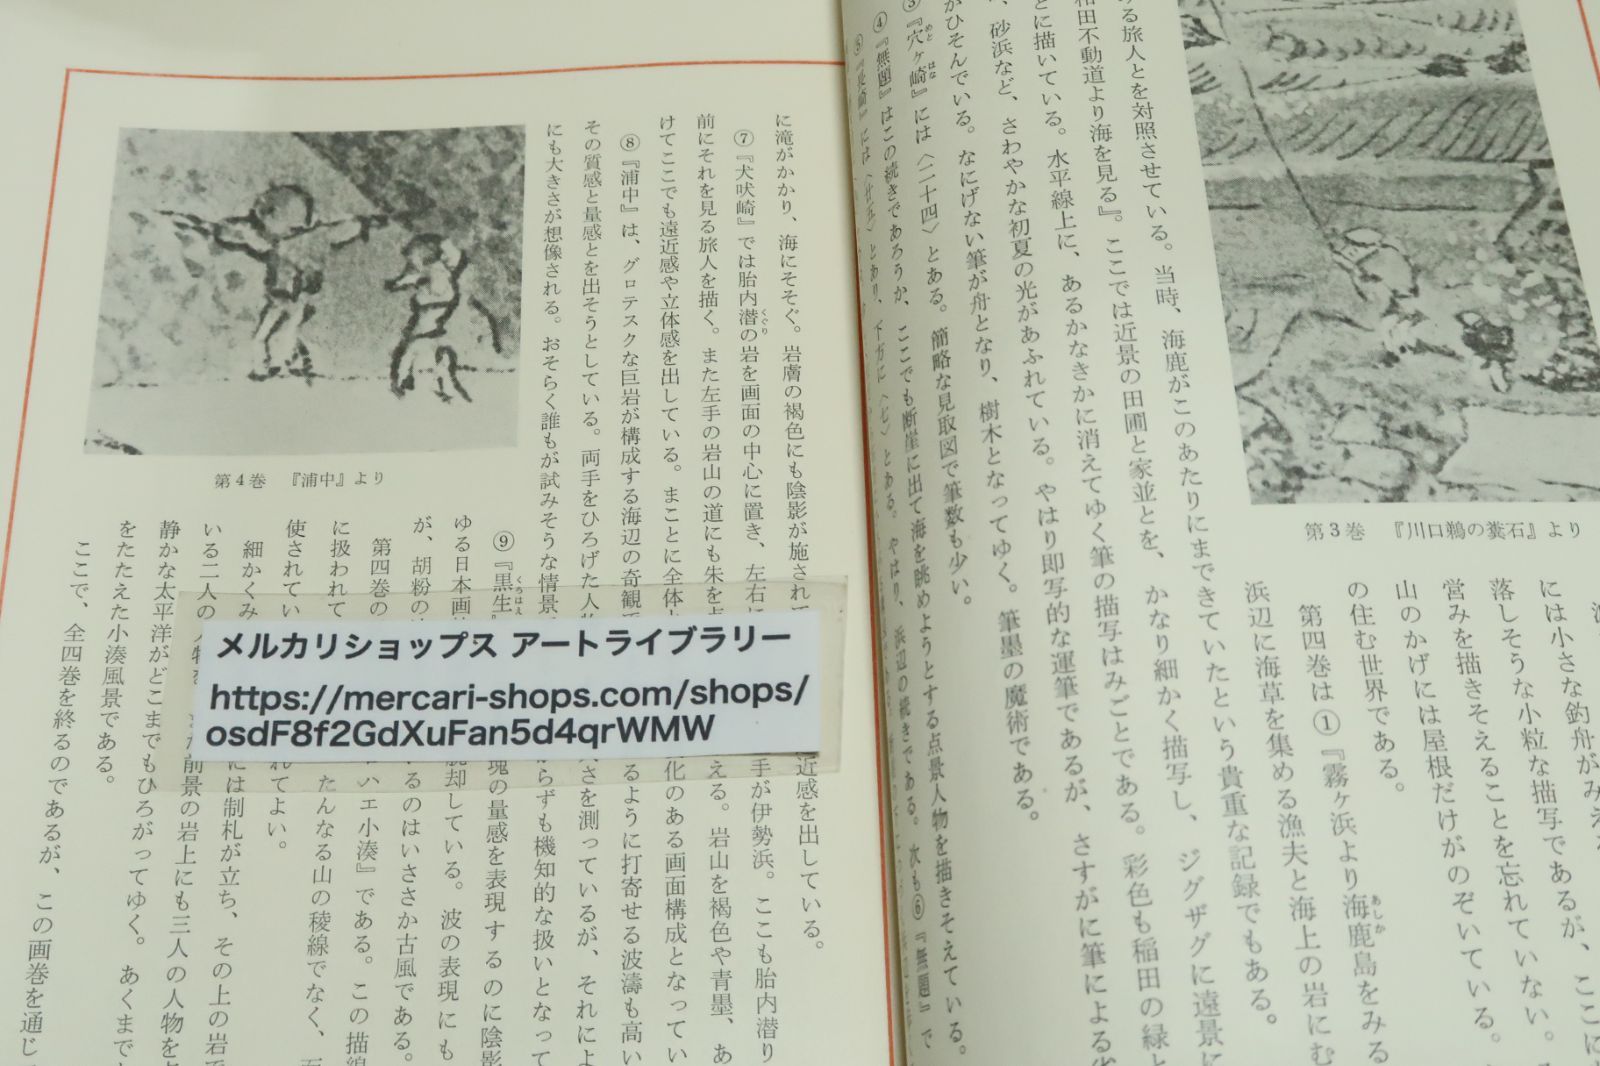 第3巻　『川口鵜の糞石』より
には小さな釣舟がみえ
落しそうな小粒な描写であるが、ここに
営みを描きそえることを忘れていない。
山のかげには屋根だけがのぞいている。
の住む世界である。
第四巻は①『霧ヶ浜より海鹿島をみる
浜辺に海草を集める漁夫と海上の岩にむ
る旅人とを対照させている。当時、海鹿がこのあたりにまできていたという貴重な記録でもある。
和田不動道より海を見る』。ここでは近景の田圃と家並とを、かなり細かく描写し、ジグザグに遠景に
とに描いている。水平線上に、あるかなきかに消えてゆく筆の描写はみごとである。彩色も稲田の緑と
、砂浜など、さわやかな初夏の光があふれている。やはり即写的な運筆であるが、さすがに筆による
がひそんでいる。なにげない筆が舟となり、樹木となってゆく。筆墨の魔術である。
③『穴ヶ崎』には〈二十四〉とある。簡略な見取図で筆数も少い。
④『無題』はこの続きであろうか、ここでも断崖に出て海を眺めようとする点景人物を描きそえている。
⑤『長崎』には〈廿五〉とあり、下方に〈七〉とある。やはり、浜辺の続きである。次も⑥『無題』で
に滝がかかり、海にそそぐ。岩膚の褐色にも陰影が施されて
近感を出している。
⑦『犬吠崎』では胎内潜の岩を画面の中心に置き、左右に
手が伊勢浜。ここも胎内潜り
前にそれを見る旅人を描く。また左手の岩山の道にも朱を
える。岩山を褐色や青墨、あ
けてここでも遠近感や立体感を出している。まことに全体
化のある画面構成となってい
⑧『浦中』は、グロテスクな巨岩が構成する海辺の奇観で
るように打寄せる波濤も高い
その質感と量感とを出そうとしている。両手をひろげた人
さを測っているが、それによ
にも大きさが想像される。おそらく誰もが試みそうな情景
からずも機知的な扱いとなって
第4巻　『浦中』より
⑨『黒生』
塊の量感を表現するのに陰影
ゆる日本画
脱却している。波の表現にも
が、胡粉の
るのはいささか古風である。
第四巻の
ハエ小湊』である。この描線
に扱われて
たんなる山の稜線でなく、
使されてい
れてよい。
細かくみ
には制札が立ち、その上の岩で
いる二人の
前景の岩上にも三人の人物を
静かな太平洋がどこまでもひろがってゆく。あくまで
をたたえた小湊風景である。
ここで、全四巻を終るのであるが、この画巻を通じ
メルカリショップス アートライブラリー
https://mercari-shops.com/shops/
osdF8f2GdXuFan5d4qrWMW